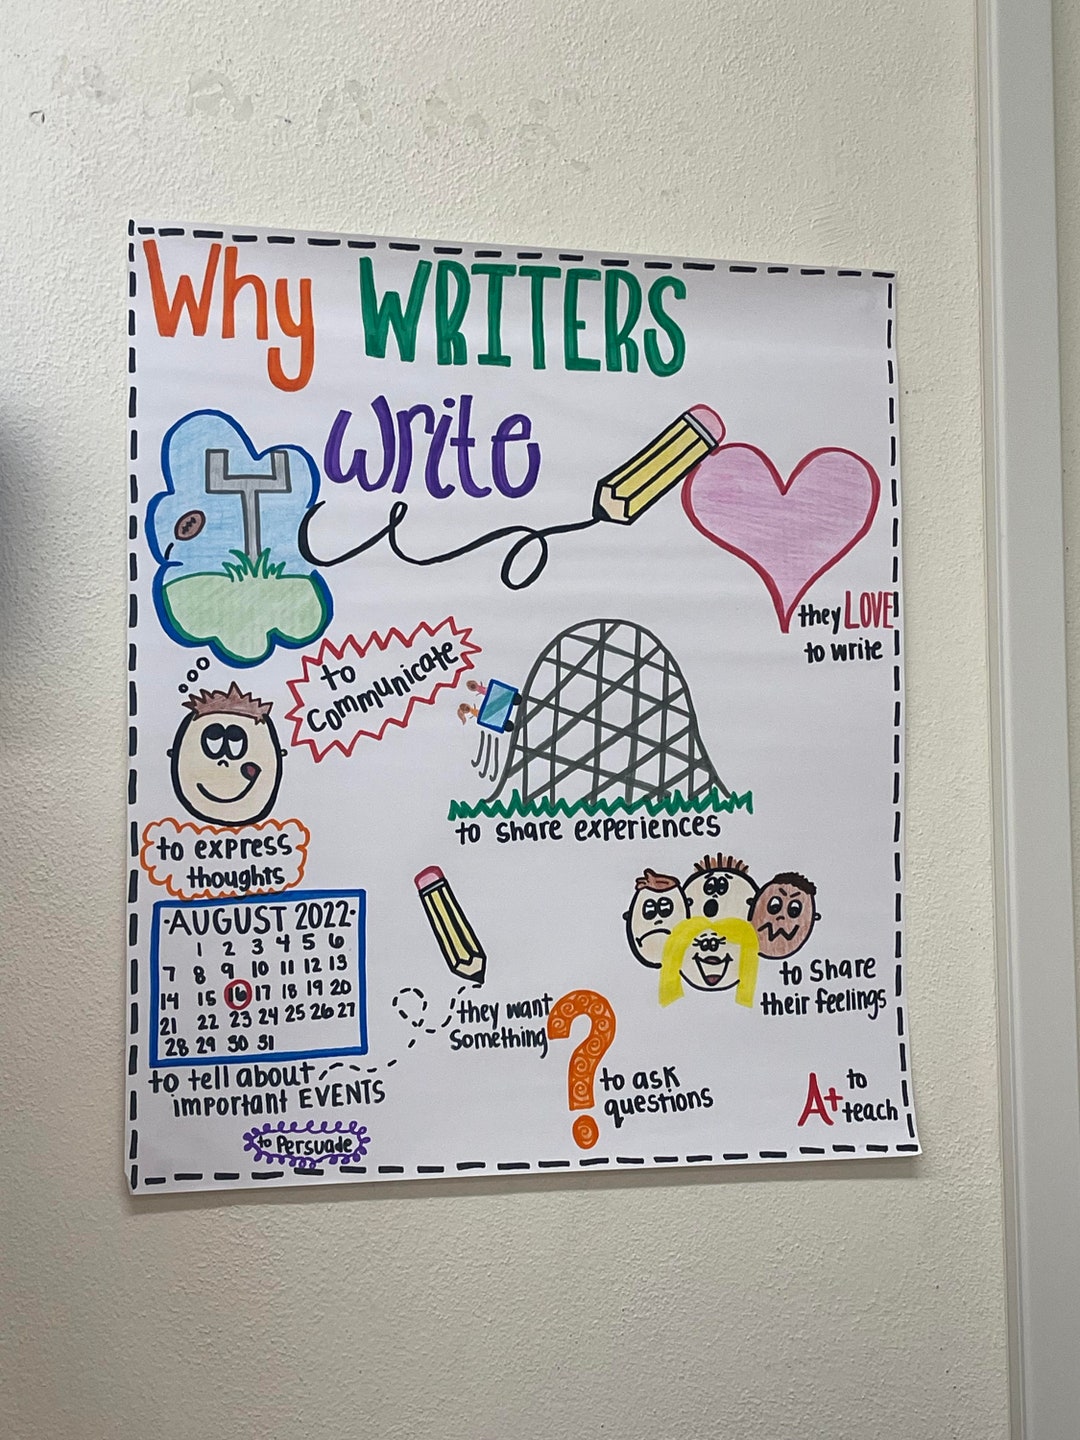 Why WRITERS
write
they LOVE
to write
to
communicate
to share experiences
to express
thoughts
·AUGUST 2022·
1 2 3 4 5 6
7 8 9 10 11 12 13
14 15 16 17 18 19 20
21 22 23 24 25 26 27
28 29 30 31
to share
their feelings
they want
something
to tell about
important EVENTS
?
to ask
questions
A+ to
teach
to Persuade